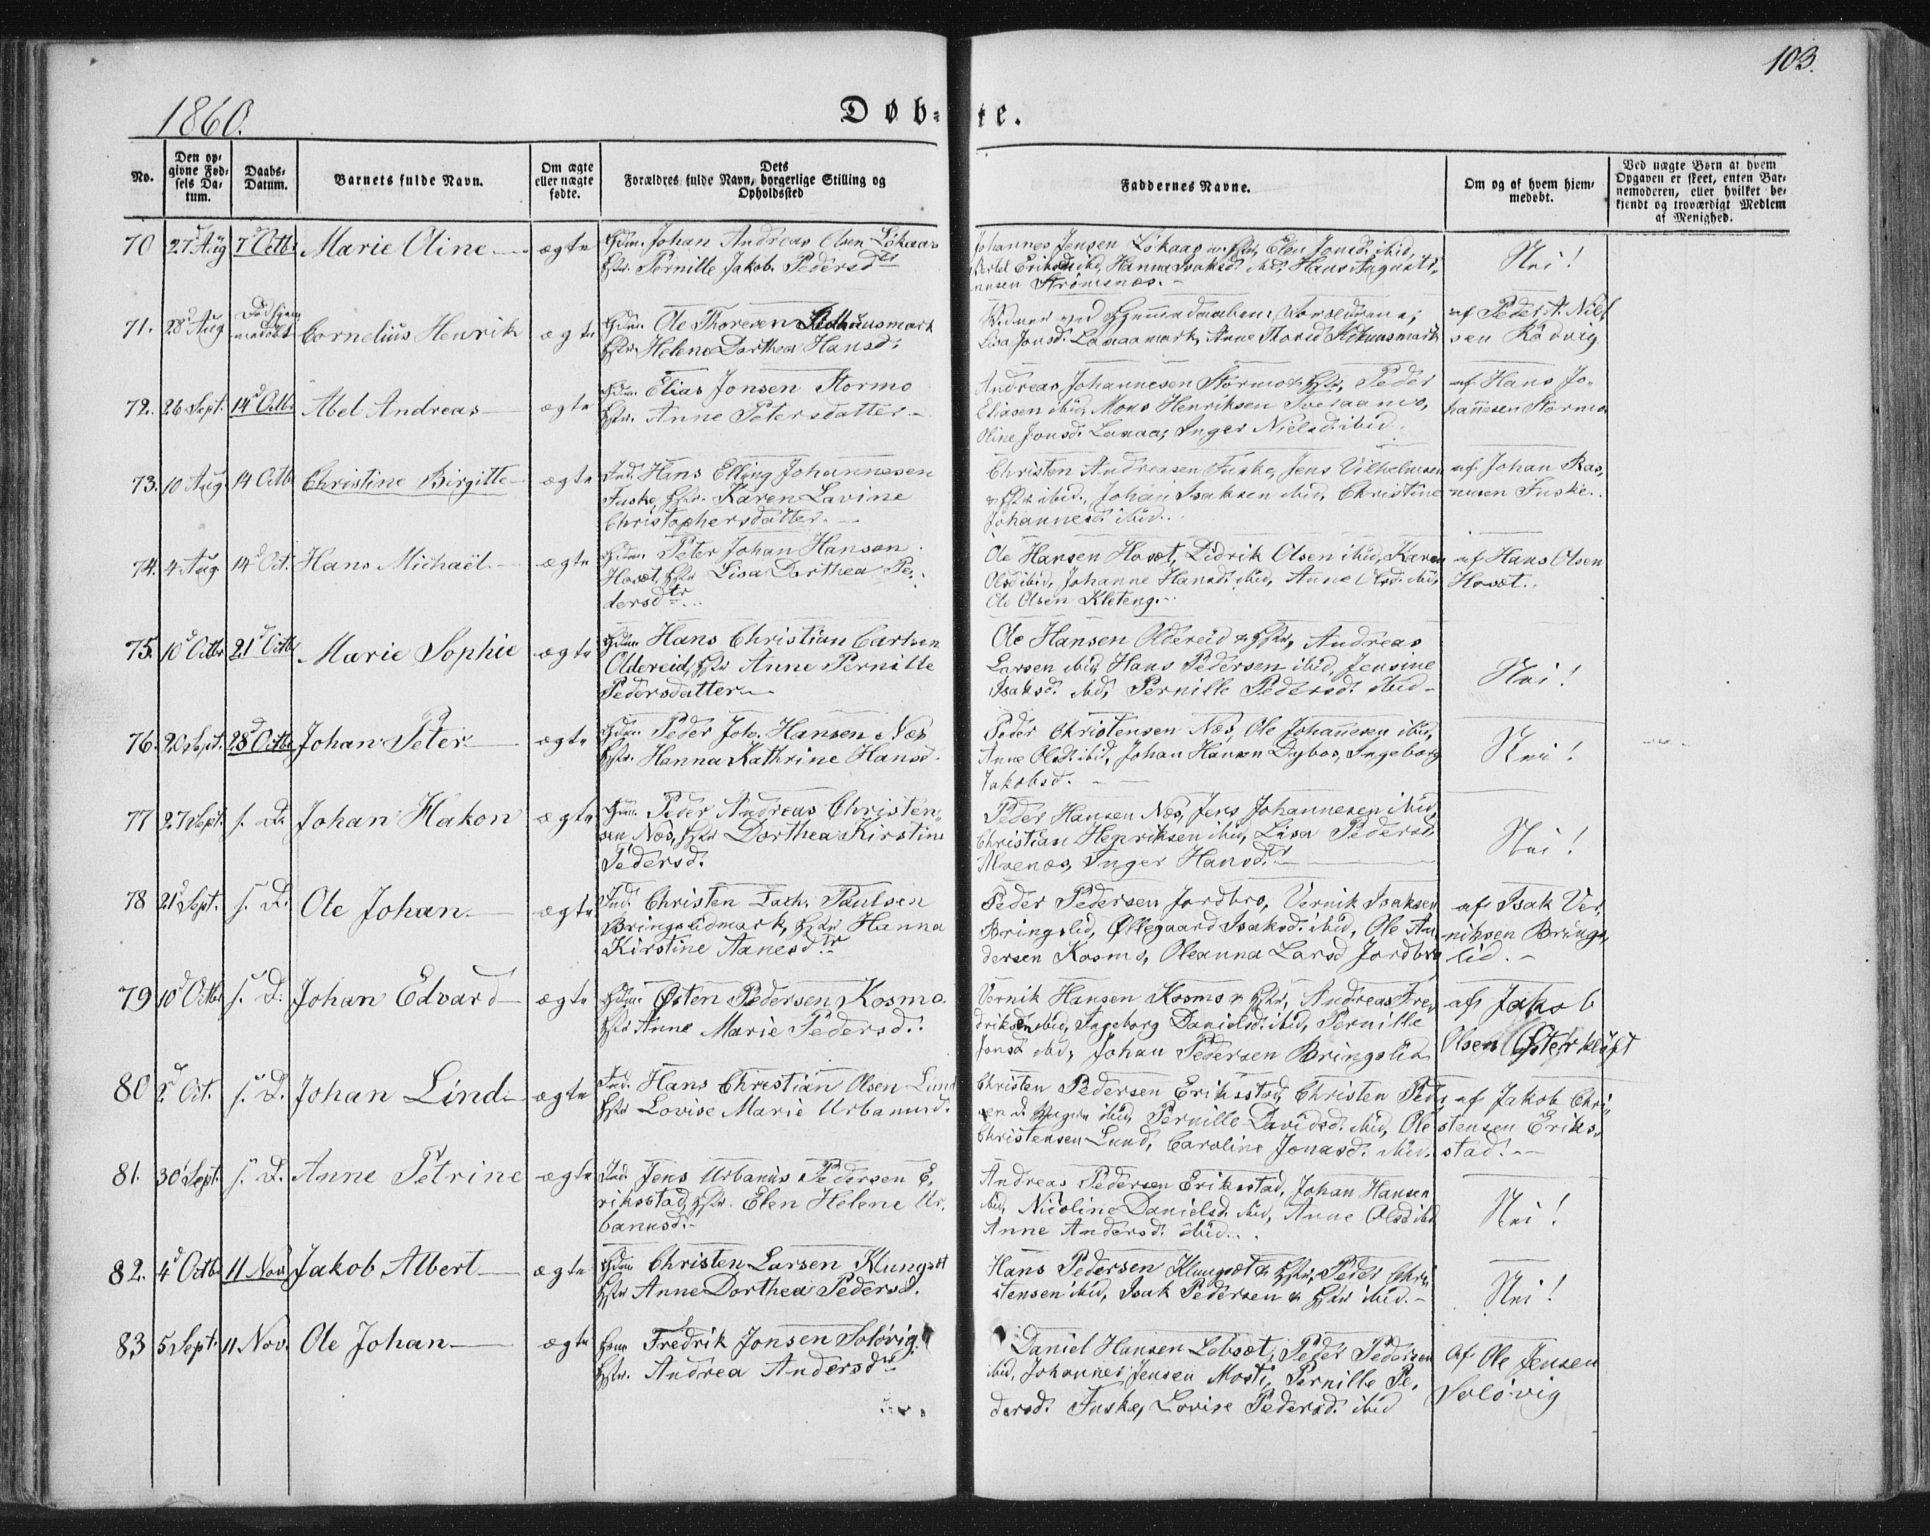 103.
1860.
Døb-te.
No.
Den opgivne Fødsels Datum.
Daabs-Datum.
Barnets fulde Navn.
Om ægte eller uægte fødte.
Dets Forældres fulde Navn, borgerlige Stilling og Opholdssted
Faddernes Navne.
Om og af hvem hjemmedøbt.
Ved uægte Børn at hvem Opgaven er skeet, enten Barnemoderen, eller hvilket bekjendt og troværdigt Medlem af Menighed.
70 27 Aug 7 Octbr Marie Oline ægte Gdm. Johan Andreas Olsen Løkaas
Hstr. Pernille Jakob. Pedersdtr
Johannes Jensen Løkaas Elen Jonsd. ibid,
Bertel Eriksen ibid, Hanna Isaksd. ibid, Hans Augusti-
nusen Strømsnæs.
Nei!
71. 28 Aug Cornelius Henrik ægte Gdm. Ole Thoresen
Hstr. Helene Dorthea Hansd.
Lisa Jonsd. Lanaamark, Anne
af Peder A. Niel
sen Kodvig
72. 26 Sept. 14 Octbr Abel Andreas ægte Gdm. Elias Jonsen Stormo
Hstr. Anne Petersdatter
Andreas Johannesen Stormo & Hstr, Peder
Eliasen ibid, Mons Henriksen
Oline Jonsd. Lanaa, Inger Nielsd. ibid.
af Hans Jo-
hannesen Stormo
73. 10 Aug 14 Octb Christine Birgitte ægte Ind. Hans Elling Johannesen
Fuske, Hstr. Karen Lavine
Christophersdatter.
Christen Andreasen Fuske, Jens Vilhelmsen
& Hstr ibid, Johan Isaksen ibid, Christine
Johannesd. ibid.
af Johan Ras-
musen Fuske.
74. 4 Aug 14 Oct. Hans Michaël ægte Gdm. Peter Johan Hansen
Hovset, Hstr Lisa Dorthea Pe-
dersdtr.
Ole Hansen Hovset, Didrik Olsen ibid, Karen
Olsd ibid, Johanne Hansd. ibid, Anne Olsd. ibid,
Ole Olsen Kleteng.
af Hans Olsen
Hovset.
75. 10 Octbr 21 Octbr Marie Sophie ægte Gdm. Hans Christian Carlsen
Oldereid, Hstr Anne Pernille
Pedersdatter
Ole Hansen Oldereid & Hstr, Andreas
Larsen ibid, Hans Pedersen ibid, Jensine
Isaksd. ibid, Pernille Pedersd. ibid
Nei!
76. 20 Sept. 28 Octbr Johan Peter ægte Gdm. Peder Joh. Hansen Næs
Hstr. Hanna Kathrine Hansd.
Peder Christensen Næs, Ole Johannesen ibid,
Anne Olsd. ibid, Johan Hansen Ingeborg
Jakobsd.
Nei!
77 27 Sept. s. D. Johan Hakon ægte Gdm. Peder Andreas Christen-
sen Næs, Hstr Dorthea Kirstine
Pedersd.
Peder Hansen Næs, Jens Johannesen ibid,
Christian Henriksen ibid, Lisa Pedersd.
Inger Hansdtr
Nei!
78 21 Sept. s. D. Ole Johan ægte Ind. Christen Zach. Paulsen
Bringslidmark, Hstr Hanna
Kirstine Aanesdtr
Peder Pedersen Jordbro, Vernik Isaksen
Bringslid, Øllegaard Isaksd. ibid, Ole An-
dersen Kosmo, Oleanna Larsd Jordbro
af Isak Ver-
niksen Brings-
lid.
79 10 Octbr s. D. Johan Edvard ægte Gdm. Østen Pedersen Kosmo
Hstr Anne Marie Pedersd.
Vernik Hansen Kosmo & Hstr, Andreas Fre-
driksen ibid, Ingeborg Danielsd. ibid, Pernille
Jonsd ibid, Johan Pedersen Bringslid
af Jakob
Olsen Østerkløft
80 2 Oct. s. D. Johan Lind ægte Ind. Hans Christian Olsen Lund
Hstr Lovise Marie Urbanusd.
Christen Pedersen Eriksstad, Christen Peder-
sen d. yngre ibid, Pernille Davidsd. ibid, Ole
Christensen Lund, Caroline Jonasd. ibid.
af Jakob Chri-
stensen Eriks-
stad.
81. 30 Sept. s. D. Anne Petrine ægte Ind. Jens Urbanus Pedersen E-
riksstad, Hstr. Elen Helene Ur-
banusd.
Andreas Pedersen Eriksstad, Johan Hansen
ibid, Nicoline Danielsd. ibid, Anne Olsd ibid
Anne Andersd. ibid.
Nei!
82. 4 Octbr 11 Nov. Jakob Albert ægte Gdm Christen Larsen Klungset
Hstr Anne Dorthea Pedersd.
Hans Pedersen Klungset & Hstr, Peder Chri-
stensen ibid, Isak Pedersen & Hstr ibid.
Nei!
83 5 Sept. 11 Nov. Ole Johan ægte Fredrik Jonsen Soløvig
Hstr. Andrea Andersdtr
Daniel Hansen Løbset, Peder Pedersen
ibid, Johannes Jensen Mosti, Pernille Pe-
dersd. Fuske, Lovise Pedersd. ibid
af Ole Jensen
Soløvig